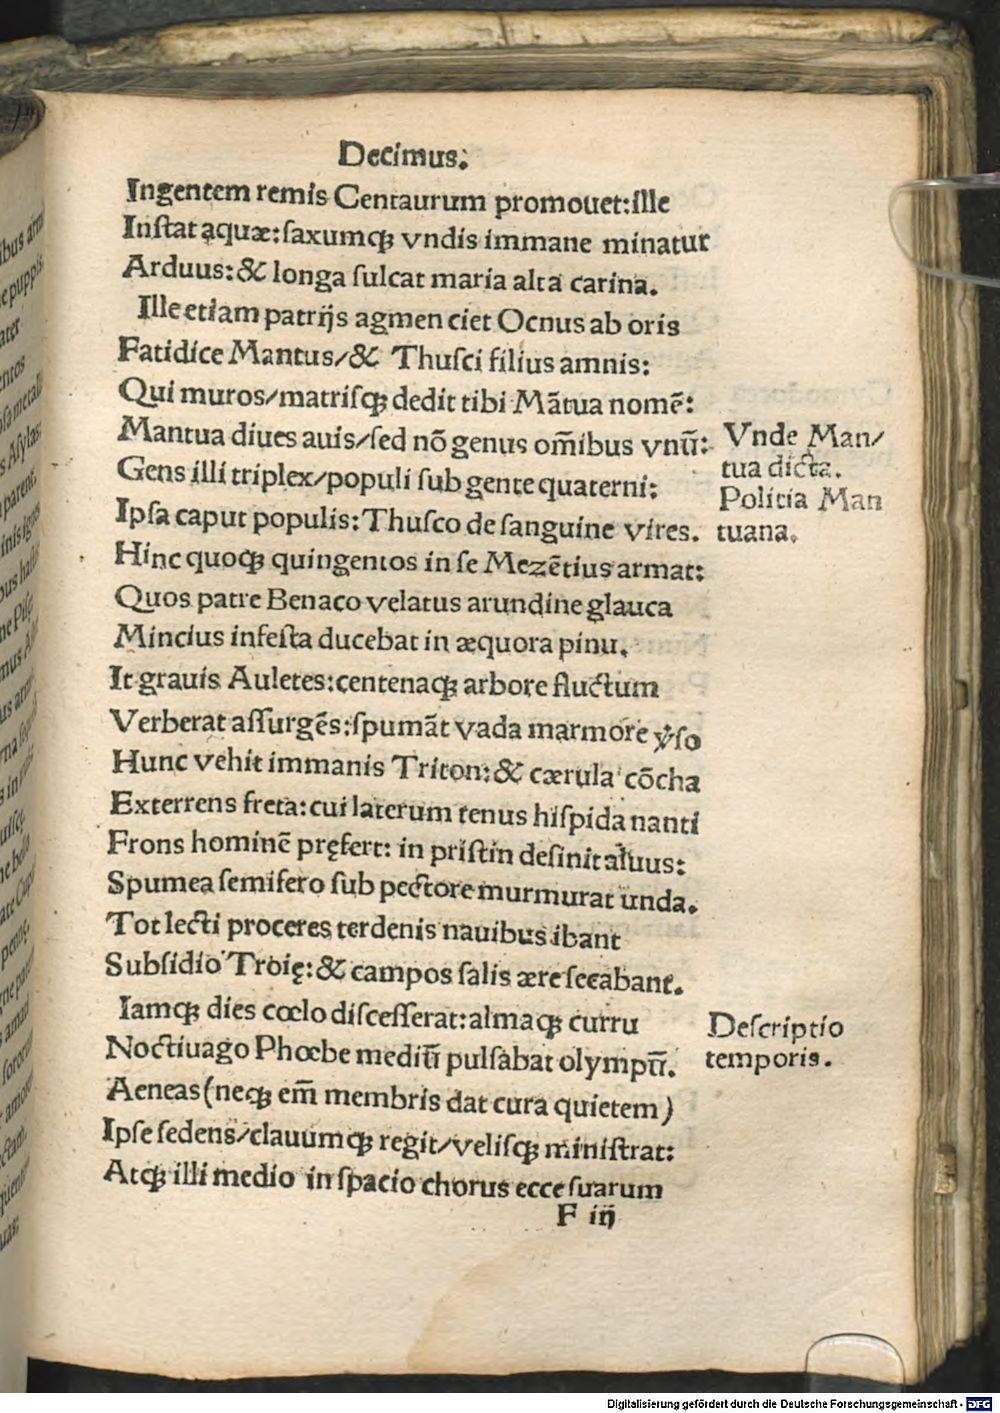 Decimus.
Ingentem remis Centaurum promouet:ille
Inſtat aquæ:ſaxumqꝫ vndis immane minatur
Arduus:& longa ſulcat maria alta carina.
Ille etiam patrijs agmen ciet Ocnus ab oris
Fatidice Mantus/& Thuſci filius amnis:
Qui muros/matriſqꝫ dedit tibi Mãtua nomẽ:
Mantua diues auis/ſed nõ genus om̃ibus vnũ:
Vnde Man/
tua dicta.
Gens illi triplex/populi ſub gente quaterni:
Politia Man
Ipſa caput populis:Thuſco de ſanguine vires.
tuana.
Hinc quoqꝫ quingentos in ſe Mezẽtius armat:
Quos patre Benaco velatus arundine glauca
Mincius infeſta ducebat in æquora pinu.
It grauis Auletes:centenaqꝫ arbore fluctum
Verberat aſſurgẽs:ſpumãt vada marmore v̓ſo
Hunc vehit immanis Triton:& cærula cõcha
Exterrens freta:cui laterum tenus hiſpida nanti
Frons hominẽ pręfert: in priſtin deſinit aluus:
Spumea ſemifero ſub pectore murmurat unda.
Tot lecti proceres terdenis nauibus ibant
Subſidio Troię:& campos ſalis ære ſecabant.
Iamqꝫ dies cœlo diſceſſerat:almaqꝫ curru
Deſcriptio
temporis.
Noctiuago Phœbe mediũ pulſabat olympũ.
Aeneas(neqꝫ em̃ membris dat cura quietem)
Ipſe ſedens/clauumqꝫ regit/veliſqꝫ miniſtrat:
Atqꝫ illi medio in ſpacio chorus ecce ſuarum
F iij
Digitalisierung gefördert durch die Deutsche Forschungsgemeinschaft - DFG